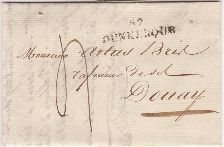 57
DUNKERQUE
Monsieur Dartus Bris
rafineur de sel
Douay